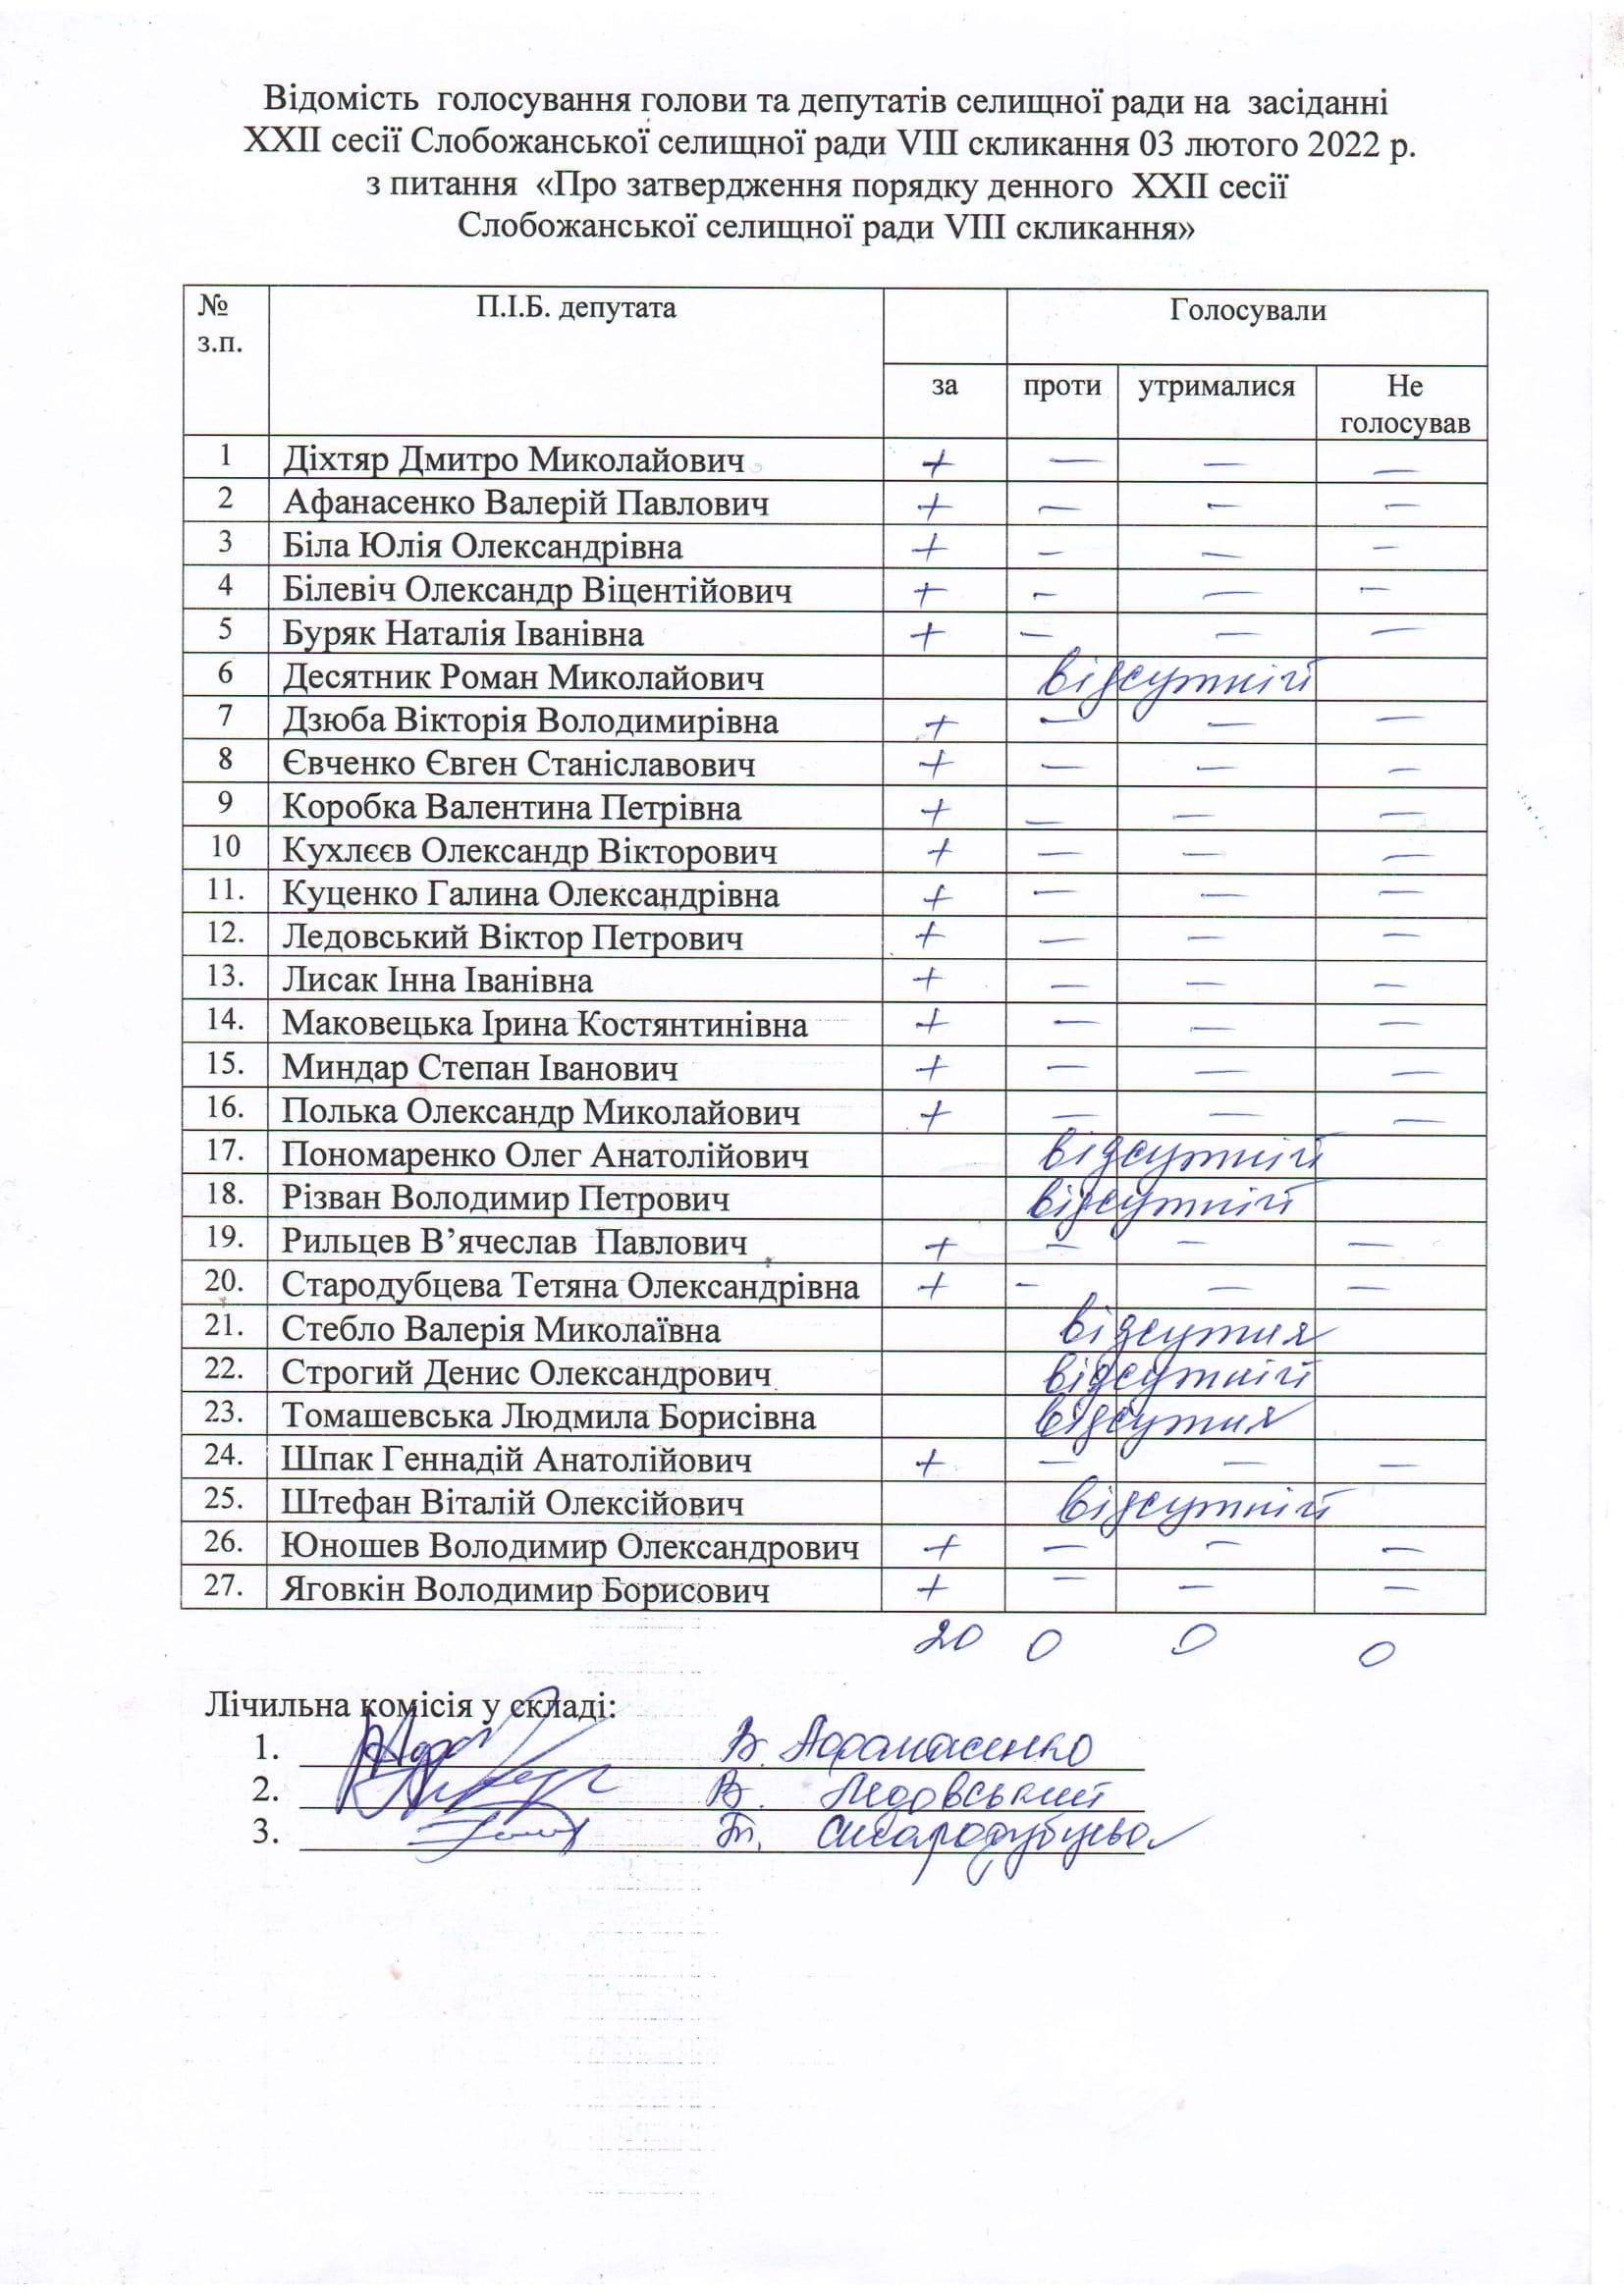 Відомість голосування голови та депутатів селищної ради на засіданні
XXII сесії Слобожанської селищної ради VIII скликання 03 лютого 2022 р.
з питання «Про затвердження порядку денного XXII сесії
Слобожанської селищної ради VIII скликання»
№ з.п. П.І.Б. депутата Голосували
за проти утрималися Не голосував
1 Діхтяр Дмитро Миколайович + — — —
2 Афанасенко Валерій Павлович + — — —
3 Біла Юлія Олександрівна + — — —
4 Білевіч Олександр Віцентійович + — — —
5 Буряк Наталія Іванівна + — — —
6 Десятник Роман Миколайович відсутній
7 Дзюба Вікторія Володимирівна + — — —
8 Євченко Євген Станіславович + — — —
9 Коробка Валентина Петрівна + — — —
10 Кухлєєв Олександр Вікторович + — — —
11. Куценко Галина Олександрівна + — — —
12. Ледовський Віктор Петрович + — — —
13. Лисак Інна Іванівна + — — —
14. Маковецька Ірина Костянтинівна + — — —
15. Миндар Степан Іванович + — — —
16. Полька Олександр Миколайович + — — —
17. Пономаренко Олег Анатолійович відсутній
18. Різван Володимир Петрович відсутній
19. Рильцев В’ячеслав Павлович + — — —
20. Стародубцева Тетяна Олександрівна + — — —
21. Стебло Валерія Миколаївна відсутня
22. Строгий Денис Олександрович відсутній
23. Томашевська Людмила Борисівна відсутня
24. Шпак Геннадій Анатолійович + — — —
25. Штефан Віталій Олексійович відсутній
26. Юношев Володимир Олександрович + — — —
27. Яговкін Володимир Борисович + — — —
20 0 0 0
Лічильна комісія у складі:
1. В. Афанасенко
2. В. Ледовський
3. Т. Стародубцева